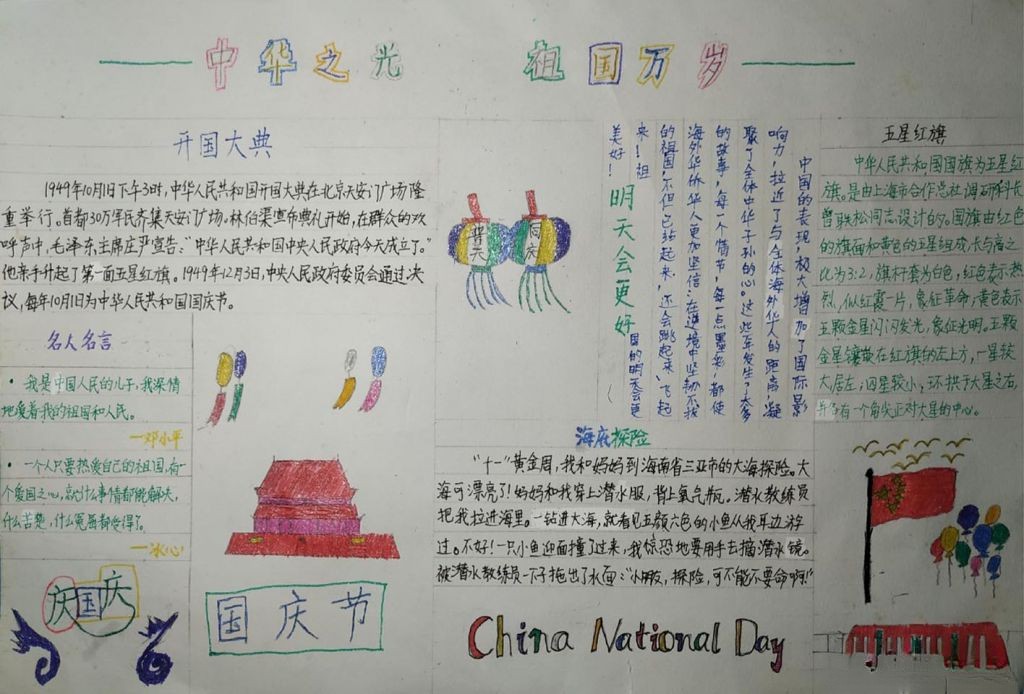 中华之光 祖国万岁
开国大典
1949年10月1日下午3时，中华人民共和国开国大典在北京天安门广场隆
重举行。首都30万军民齐集天安门广场。林伯渠宣布典礼开始，在群众的欢
呼声中，毛泽东主席庄严宣告：“中华人民共和国中央人民政府今天成立了。”
他亲手升起了第一面五星红旗。1949年12月3日，中央人民政府委员会通过决
议，每年10月1日为中华人民共和国国庆节。
名人名言
• 我是中国人民的儿子，我深情
地爱着我的祖国和人民。
—邓小平
• 一个人只要热爱自己的祖国，有一
个爱国之心，就什么事情都能解决，
什么苦楚，什么冤屈都受得了。
—冰心
庆国庆
国庆节
普天
同庆
明天会更好
中国的表现，极大增加了国际影
响力，拉近了与全体海外华人的距离，凝
聚了全体中华子孙的心。这些年发生了太多
的故事，每一个情节，每一点墨彩，都使
海外华侨、华人更加坚信：在逆境中坚韧不拔
的祖国，不但已站起来，还会跳起来、飞起
来！祖国的明天会更
美好！
海底探险
“十一”黄金周，我和妈妈到海南省三亚市的大海探险。大
海可漂亮了！妈妈和我穿上潜水服，背上氧气瓶。潜水教练员
把我拉进海里。一钻进大海，就看见五颜六色的小鱼从我耳边游
过。不好！一只小鱼迎面撞了过来，我惊恐地要用手去摘潜水镜。
被潜水教练员一下子拖出了水面：“小朋友，探险，可不能不要命啊！”
China National Day
五星红旗
中华人民共和国国旗为五星红
旗。是由上海市合作总社调研科长
曾联松同志设计的。国旗由红色
的旗面和黄色的五星组成，长与高之
比为3:2，旗杆套为白色，红色表示热
烈，似红霞一片，象征革命；黄色表示
五颗金星闪闪发光，象征光明。五颗
金星镶嵌在红旗的左上方，一星较
大居左；四星较小，环拱于大星之右，
并各有一个角尖正对大星的中心。